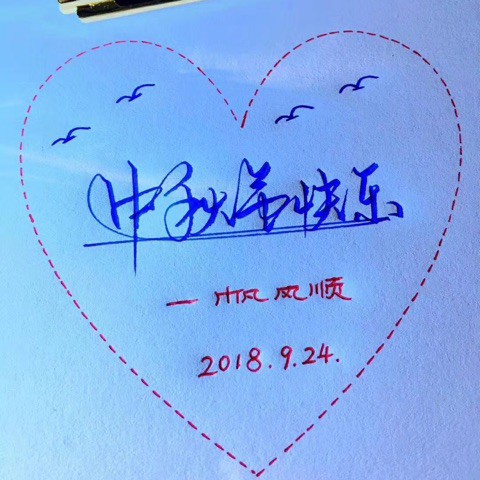 中秋节快乐
一帆风顺
2018.9.24.